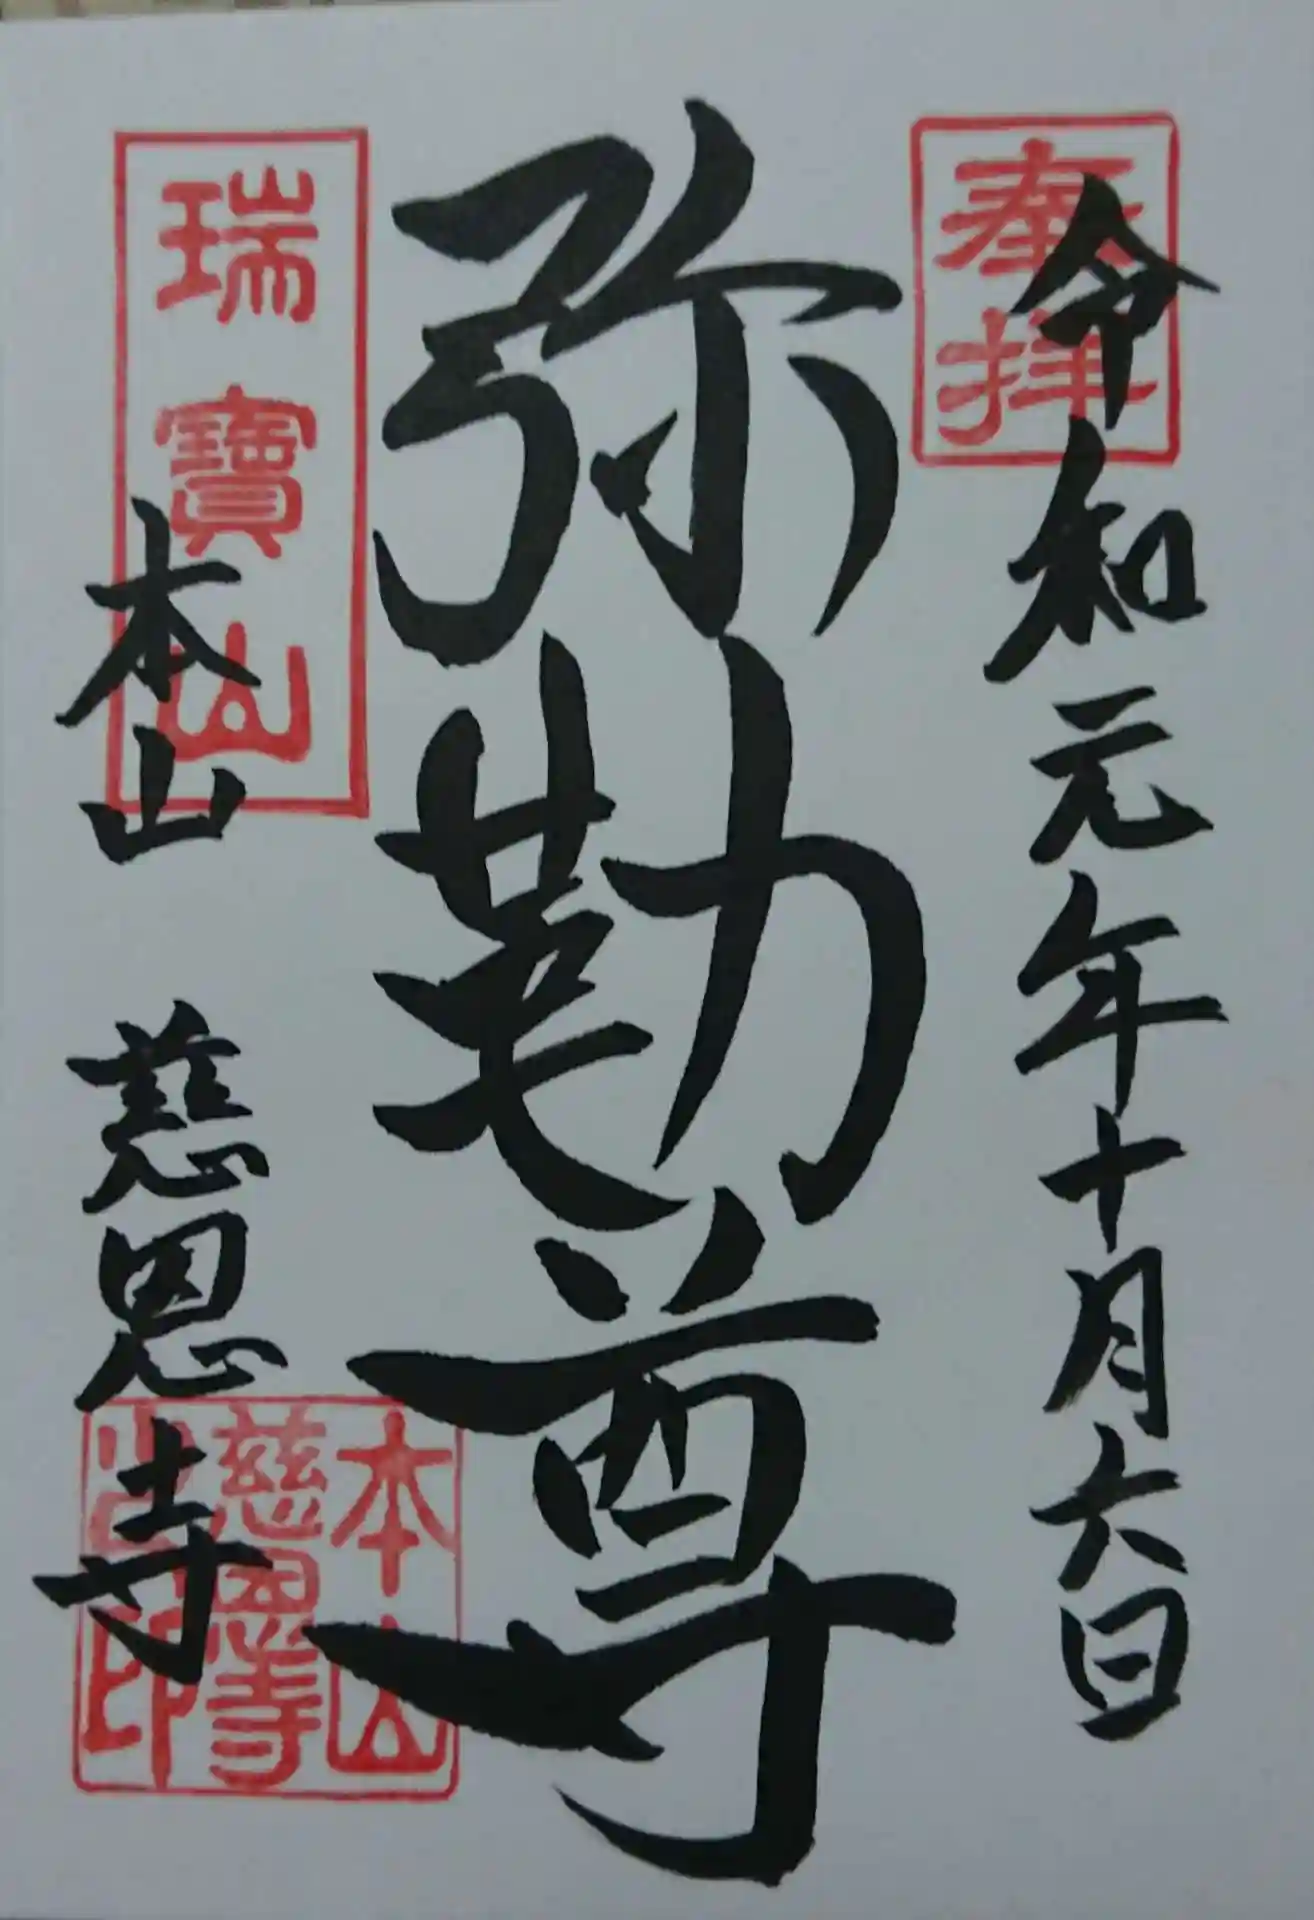 奉拝
令和元年十月六日
弥勒尊
瑞寶山
本山 慈恩寺
本山
慈恩寺
之印